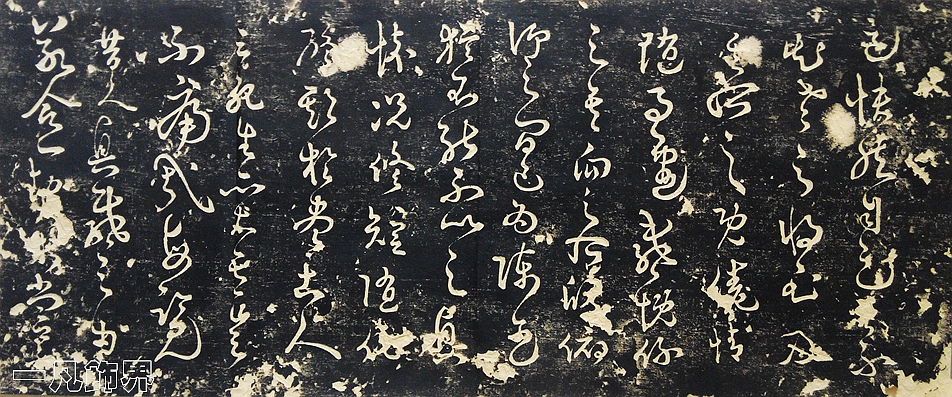 己怏然自足不
知老之將至及
其所之既倦情
隨事遷感慨係
之矣向之所欣俯
仰之間已為陳迹
猶不能不以之興
懷況脩短隨化
終期於盡古人
云死生亦大矣豈
不痛哉每覽
昔人興感之由
若合一契未嘗
一凡飾界